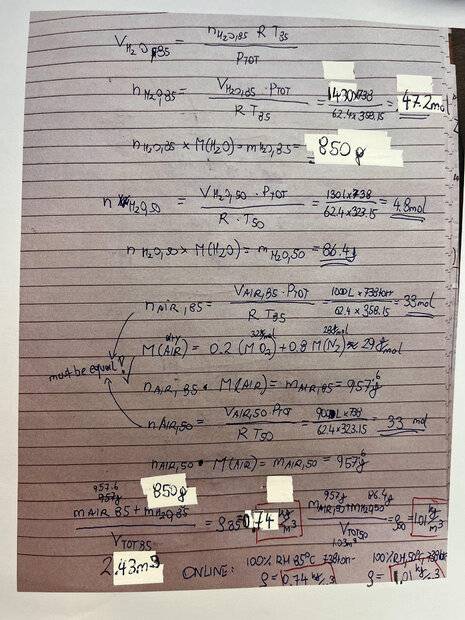 V H₂O,85 = n H₂O,85 R T85 / PTOT
n H₂O,85 = V H₂O,85 · PTOT / R T85 = 1430x738 / 62.4x358.15 = 47.2mol
n H₂O,85 x M(H₂O) = m H₂O,85 = 850g
n H₂O,50 = V H₂O,50 · PTOT / R · T50 = 130L x 738 / 62.4x323.15 = 4.8mol
n H₂O,50 x M(H₂O) = m H₂O,50 = 86.4g
n AIR,85 = V AIR,85 · PTOT / R T85 = 1000L x 738torr / 62.4 x 358.15 = 33mol
must be equal! M(AIR) dry = 0.2 (M O₂) 32g/mol + 0.8 M(N₂) 28g/mol ≈ 29 g/mol
n AIR,85 · M(AIR) = m AIR,85 = 957g
n AIR,50 = V AIR,50 PTOT / R T50 = 900L x 738 / 62.4x323.15 = 33 mol
n AIR,50 · M(AIR) = m AIR,50 = 957g
957.6 957g 850g 957g 86.4g
m AIR 85 + m H₂O,85 / VTOT85 = ρ85 = 0.74 kg/m³ m AIR,50 + m H₂O,50 / VTOT50 = ρ50 = 1.01 kg/m³
2.43m³ 1.03m³
ONLINE: 100% RH 85°C 738torr 100% RH, 50°C, 738torr
ρ = 0.74 kg/m3 ρ = 1.01 kg/m3